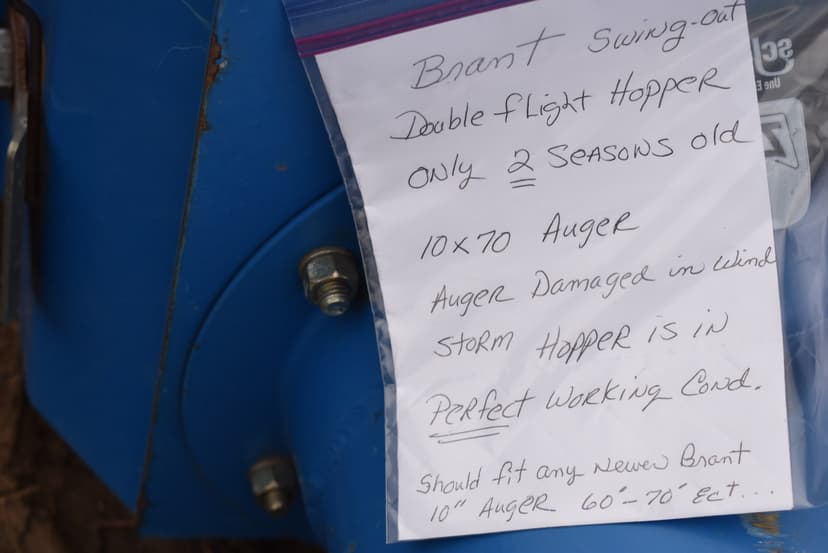 Brant Swing-out
Double flight Hopper
ONLY 2 SEASONS old
10x70 Auger
Auger Damaged in Wind
STORM Hopper is in
Perfect Working Cond.
Should fit any Newer Brant
10" Auger 60'-70' Ect...